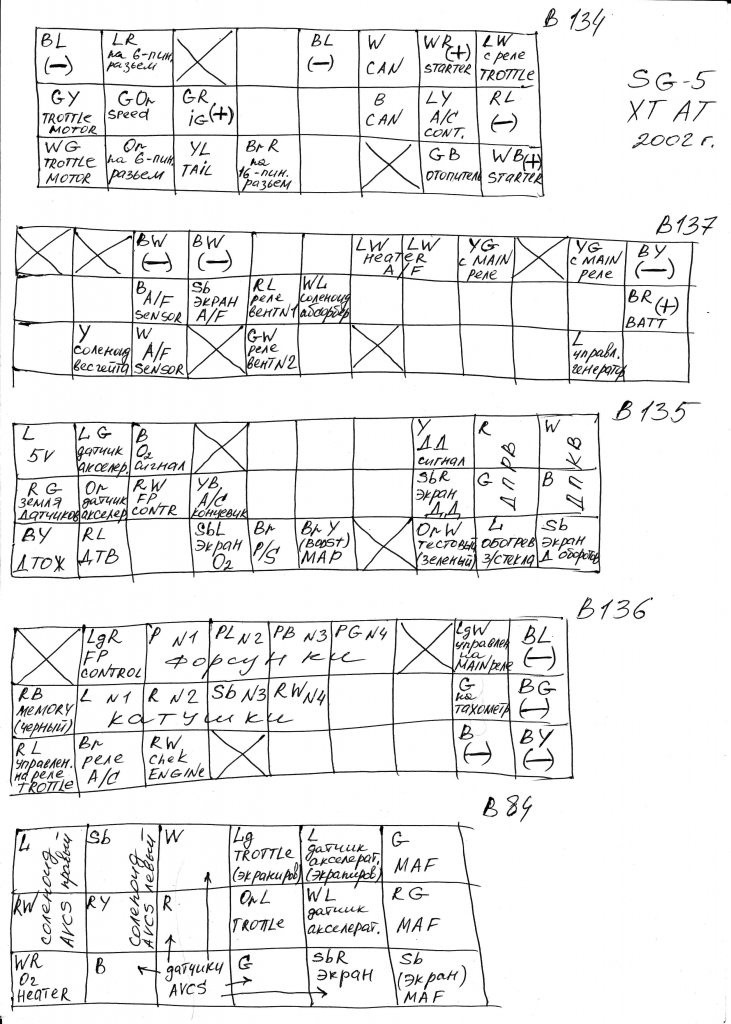 B 134
SG-5
XT AT
2002 г.
BL (−)
LR на 6-пин. разъем
BL (−)
W CAN
WR (+) STARTER
LW с реле TROTTLE
GY TROTTLE MOTOR
GOr speed
GR iG (+)
B CAN
LY A/C CONT.
RL (−)
WG TROTTLE MOTOR
Or на 6-пин. разъем
YL TAIL
BrR на 16-пин. разъем
GB отопитель
WB (+) STARTER
B137
BW (−)
BW (−)
LW
LW
HEATER A/F
YG с MAIN реле
YG с MAIN реле
BY (−)
B A/F SENSOR
Sb ЭКРАН A/F
RL реле вент N1
WL соленоид абсорбер
BR (+) BATT
Y соленоид вестгейта
W A/F SENSOR
GW реле вент N2
L управл. генератор
B135
L 5V
LG датчик акселер.
B O2 сигнал
Y ДД сигнал
R
W
ДПРВ
ДПКВ
RG земля датчиков
Or датчик акселер
RW FP CONTR
YB A/C концевик
SbR экран ДД
G
B
BY ДТОЖ
RL ДТВ
SbL Экран O2
Br P/S
BrY (Boost) MAP
OrW тестовый (зеленый)
L ОБОГРЕВ З/СТЕКЛА
Sb экран Д оборотов
B136
LgR FP CONTROL
P N1
PL N2
PB N3
PG N4
форсунки
LgW управлен на MAIN реле
BL (−)
RB MEMORY (черный)
L N1
R N2
Sb N3
RW N4
катушки
G на тахометр
BG (−)
RL управлен. на реле TROTTLE
Br реле A/C
RW Chek ENGINE
B (−)
BY (−)
B 84
L
соленоид AVCS правый
Sb
Соленоид AVCS левый
W
Lg TROTTLE (экраниров)
L датчик акселерат. (экраниров)
G MAF
RW
RY
R
OrL TROTTLE
WL датчик акселерат.
RG MAF
WR O2 HEATER
B
датчики AVCS
G
SbR ЭКРАН
Sb (Экран) MAF